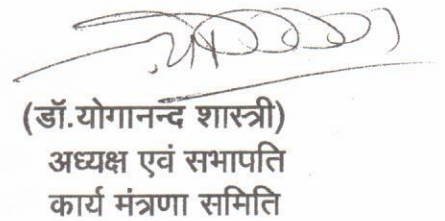 (डॉ.योगानन्द शास्त्री)
अध्यक्ष एवं सभापति
कार्य मंत्रणा समिति